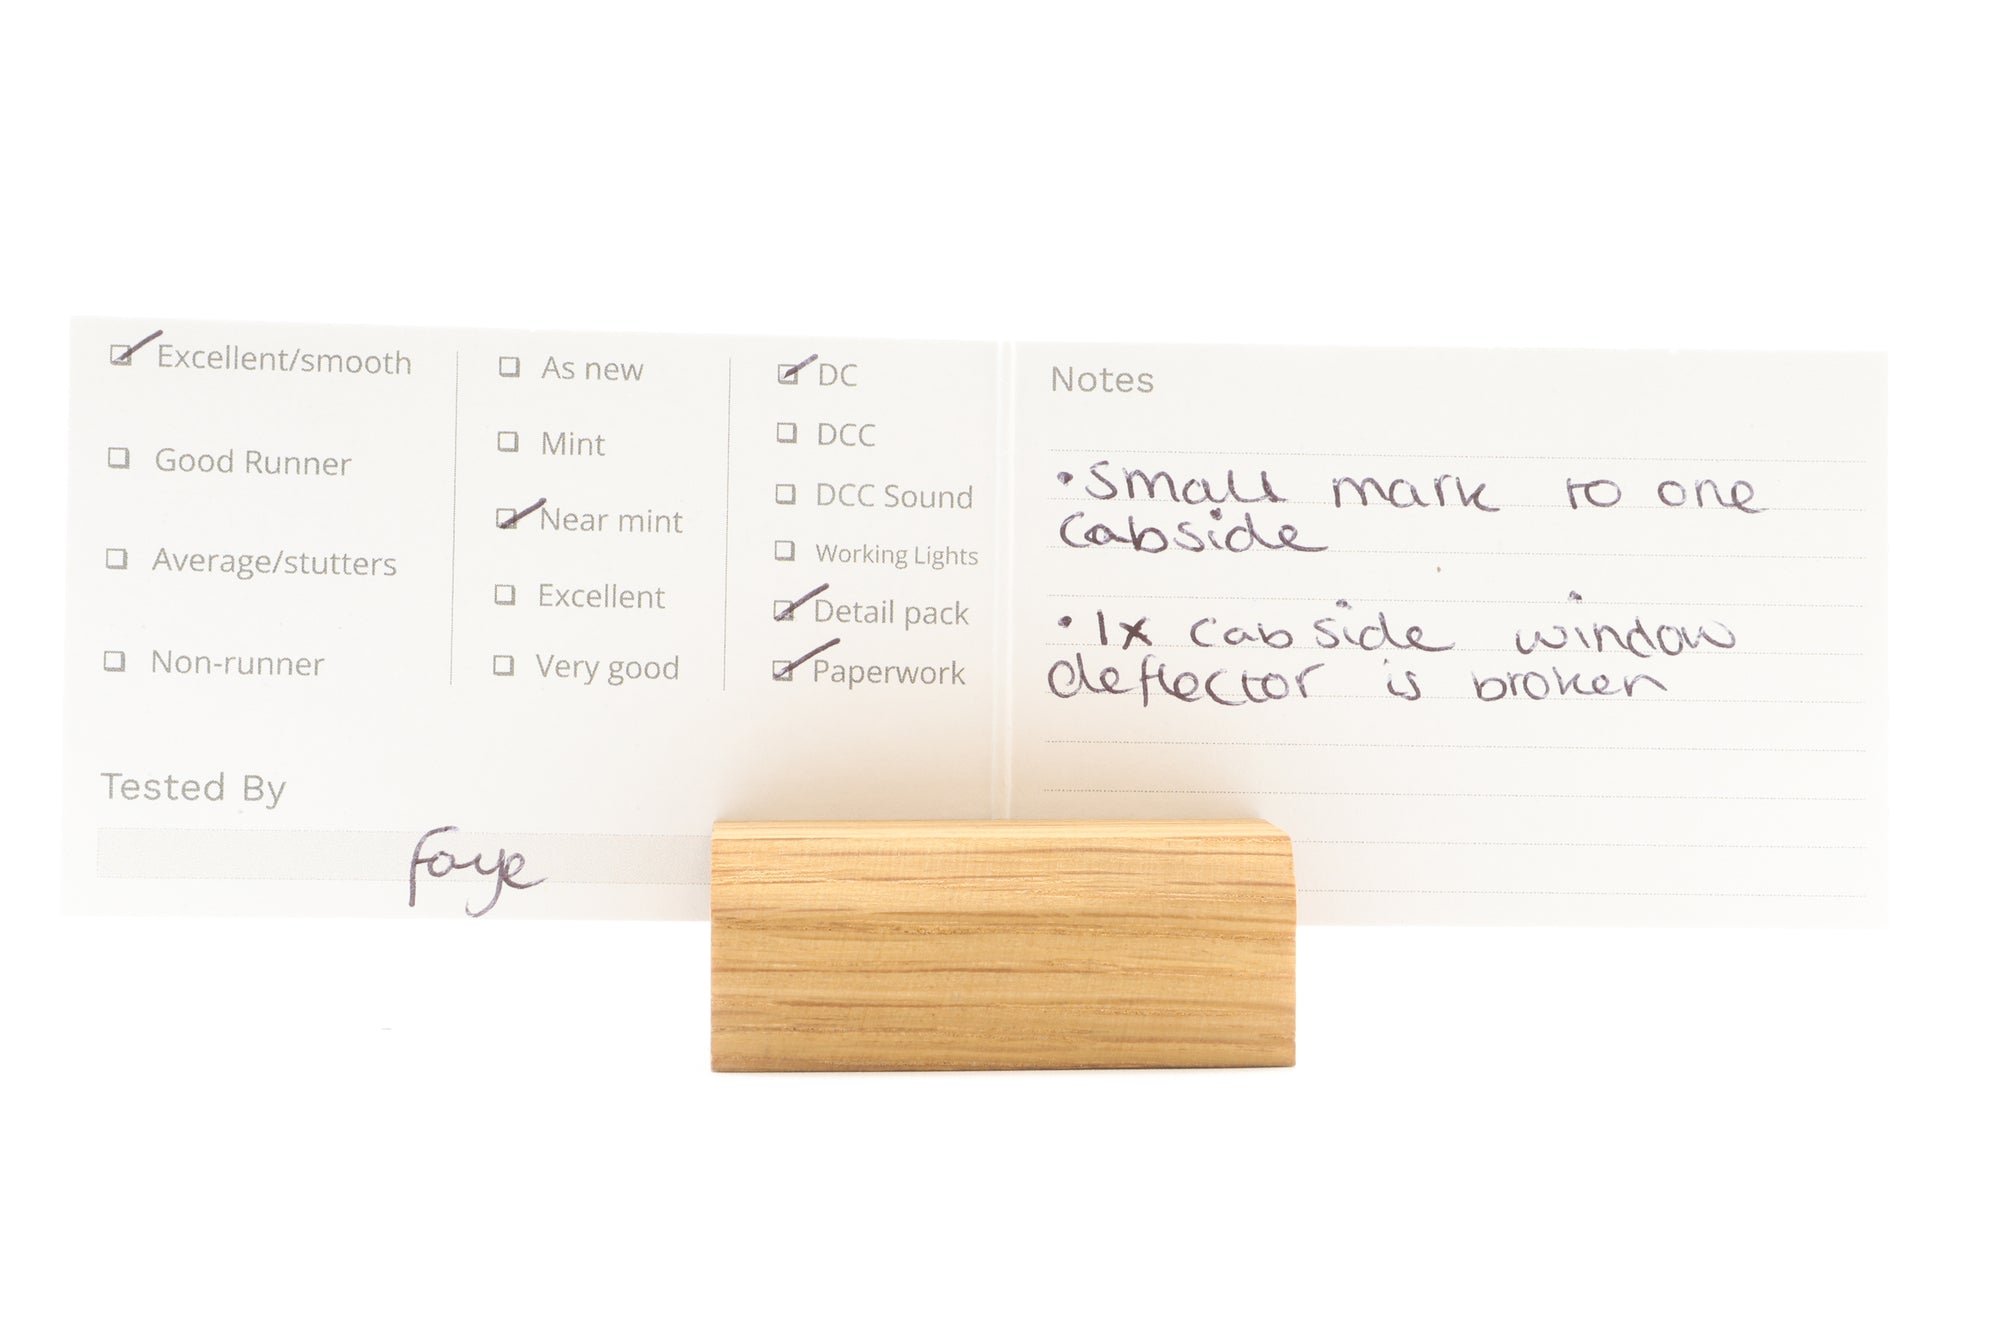 Excellent/smooth
Good Runner
Average/stutters
Non-runner
As new
Mint
Near mint
Excellent
Very good
DC
DCC
DCC Sound
Working Lights
Detail pack
Paperwork
Tested By
faye
Notes
• Small mark to one
cabside
• 1x cabside window
deflector is broken